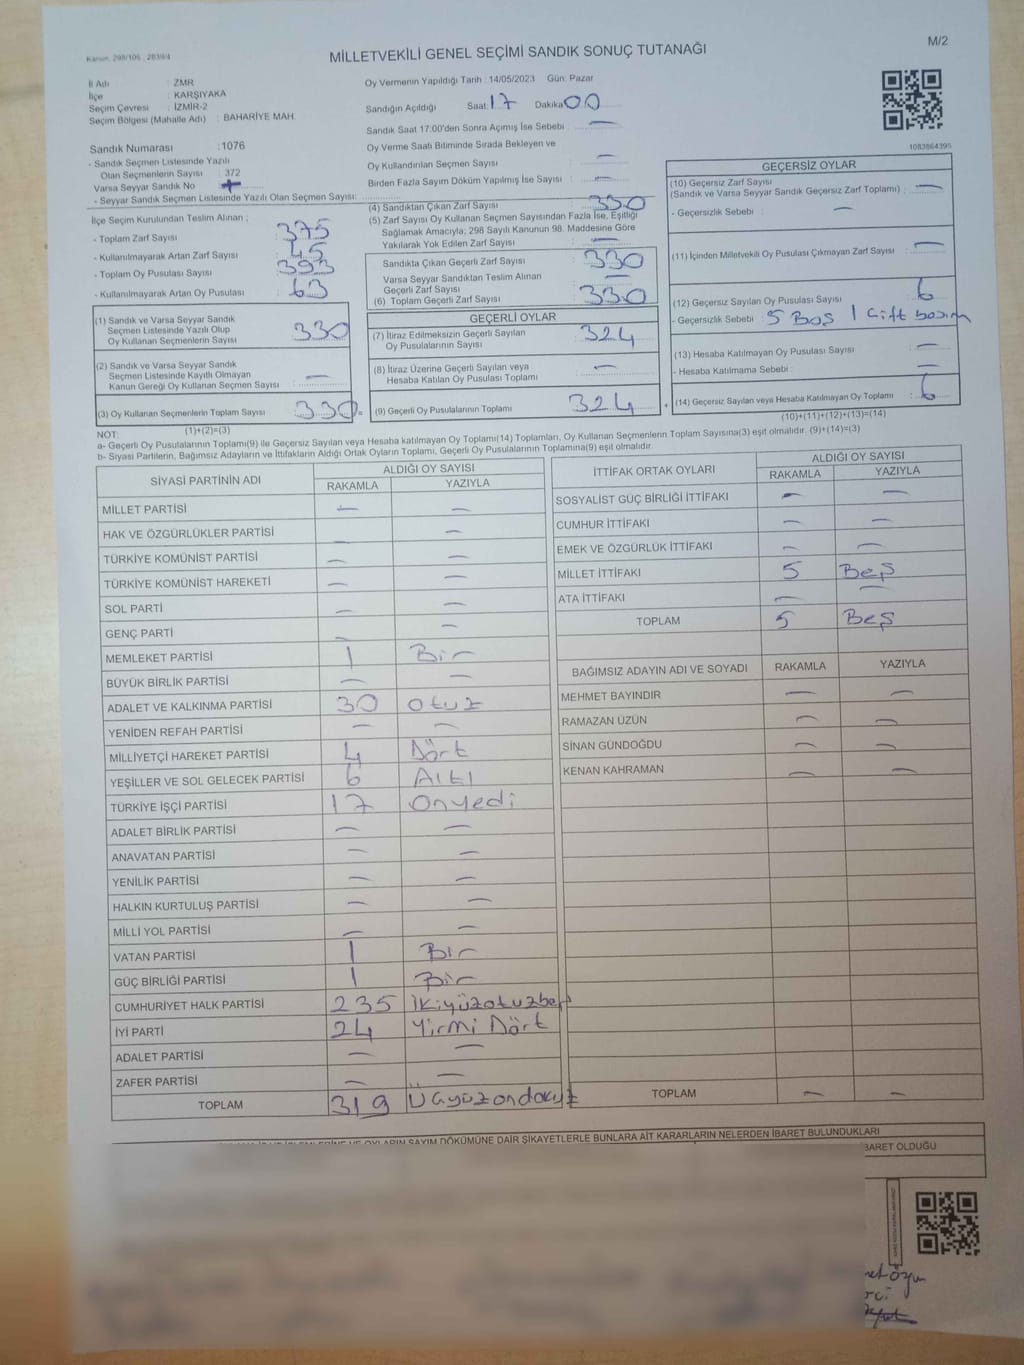 Kanun: 298/105 , 2839/4
M/2
MİLLETVEKİLİ GENEL SEÇİMİ SANDIK SONUÇ TUTANAĞI
İl Adı : ZMR
İlçe : KARŞIYAKA
Seçim Çevresi : İZMİR-2
Seçim Bölgesi (Mahalle Adı) : BAHARİYE MAH.
Oy Vermenin Yapıldığı Tarih : 14/05/2023 Gün: Pazar
Sandığın Açıldığı Saat: 17 Dakika 00
Sandık Saat 17:00'den Sonra Açımış İse Sebebi : —
Oy Verme Saati Bitiminde Sırada Bekleyen ve
Oy Kullandırılan Seçmen Sayısı : —
Birden Fazla Sayım Döküm Yapılmış İse Sayısı : —
Sandık Numarası : 1076
- Sandık Seçmen Listesinde Yazılı
Olan Seçmenlerin Sayısı : 372
Varsa Seyyar Sandık No :
- Seyyar Sandık Seçmen Listesinde Yazılı Olan Seçmen Sayısı:
İlçe Seçim Kurulundan Teslim Alınan ;
- Toplam Zarf Sayısı : 375
- Kullanılmayarak Artan Zarf Sayısı : 45
- Toplam Oy Pusulası Sayısı : 393
- Kullanılmayarak Artan Oy Pusulası : 63
(1) Sandık ve Varsa Seyyar Sandık
Seçmen Listesinde Yazılı Olup
Oy Kullanan Seçmenlerin Sayısı : 330
(2) Sandık ve Varsa Seyyar Sandık
Seçmen Listesinde Kayıtlı Olmayan
Kanun Gereği Oy Kullanan Seçmen Sayısı : —
(3) Oy Kullanan Seçmenlerin Toplam Sayısı : 330
(1)+(2)=(3)
(4) Sandıktan Çıkan Zarf Sayısı : 330
(5) Zarf Sayısı Oy Kullanan Seçmen Sayısından Fazla İse, Eşitliği
Sağlamak Amacıyla; 298 Sayılı Kanunun 98. Maddesine Göre
Yakılarak Yok Edilen Zarf Sayısı : —
Sandıkta Çıkan Geçerli Zarf Sayısı : 330
Varsa Seyyar Sandıktan Teslim Alınan
Geçerli Zarf Sayısı : —
(6) Toplam Geçerli Zarf Sayısı : 330
GEÇERLİ OYLAR
(7) İtiraz Edilmeksizin Geçerli Sayılan
Oy Pusulalarının Sayısı : 324
(8) İtiraz Üzerine Geçerli Sayılan veya
Hesaba Katılan Oy Pusulası Toplamı : —
(9) Geçerli Oy Pusulalarının Toplamı : 324
1083864395
GEÇERSİZ OYLAR
(10) Geçersiz Zarf Sayısı
(Sandık ve Varsa Seyyar Sandık Geçersiz Zarf Toplamı) : —
- Geçersizlik Sebebi : —
(11) İçinden Milletvekili Oy Pusulası Çıkmayan Zarf Sayısı : —
(12) Geçersiz Sayılan Oy Pusulası Sayısı : 6
- Geçersizlik Sebebi : 5 Boş 1 Çift basım
(13) Hesaba Katılmayan Oy Pusulası Sayısı : —
- Hesaba Katılmama Sebebi : —
(14) Geçersiz Sayılan veya Hesaba Katılmayan Oy Toplamı : 6
(10)+(11)+(12)+(13)=(14)
NOT:
a- Geçerli Oy Pusulalarının Toplamı(9) ile Geçersiz Sayılan veya Hesaba katılmayan Oy Toplamı(14) Toplamları, Oy Kullanan Seçmenlerin Toplam Sayısına(3) eşit olmalıdır. (9)+(14)=(3)
b- Siyasi Partilerin, Bağımsız Adayların ve İttifakların Aldığı Ortak Oyların Toplamı, Geçerli Oy Pusulalarının Toplamına(9) eşit olmalıdır.
SİYASİ PARTİNİN ADI ALDIĞI OY SAYISI
RAKAMLA YAZIYLA
MİLLET PARTİSİ — —
HAK VE ÖZGÜRLÜKLER PARTİSİ — —
TÜRKİYE KOMÜNİST PARTİSİ — —
TÜRKİYE KOMÜNİST HAREKETİ — —
SOL PARTİ — —
GENÇ PARTİ — —
MEMLEKET PARTİSİ 1 Bir
BÜYÜK BİRLİK PARTİSİ — —
ADALET VE KALKINMA PARTİSİ 30 otuz
YENİDEN REFAH PARTİSİ — —
MİLLİYETÇİ HAREKET PARTİSİ 4 Dört
YEŞİLLER VE SOL GELECEK PARTİSİ 6 Altı
TÜRKİYE İŞÇİ PARTİSİ 17 Onyedi
ADALET BİRLİK PARTİSİ — —
ANAVATAN PARTİSİ — —
YENİLİK PARTİSİ — —
HALKIN KURTULUŞ PARTİSİ — —
MİLLİ YOL PARTİSİ — —
VATAN PARTİSİ 1 Bir
GÜÇ BİRLİĞİ PARTİSİ 1 Bir
CUMHURİYET HALK PARTİSİ 235 İkiyüzotuzbeş
İYİ PARTİ 24 Yirmi Dört
ADALET PARTİSİ — —
ZAFER PARTİSİ — —
TOPLAM 319 Üçyüzondokuz
İTTİFAK ORTAK OYLARI ALDIĞI OY SAYISI
RAKAMLA YAZIYLA
SOSYALİST GÜÇ BİRLİĞİ İTTİFAKI — —
CUMHUR İTTİFAKI — —
EMEK VE ÖZGÜRLÜK İTTİFAKI — —
MİLLET İTTİFAKI 5 Beş
ATA İTTİFAKI — —
TOPLAM 5 Beş
BAĞIMSIZ ADAYIN ADI VE SOYADI RAKAMLA YAZIYLA
MEHMET BAYINDIR — —
RAMAZAN ÜZÜN — —
SİNAN GÜNDOĞDU — —
KENAN KAHRAMAN — —
TOPLAM — —
VE OYLARIN SAYIM DÖKÜMÜNE DAİR ŞİKAYETLERLE BUNLARA AİT KARARLARIN NELERDEN İBARET BULUNDUKLARI
BARET OLDUĞU